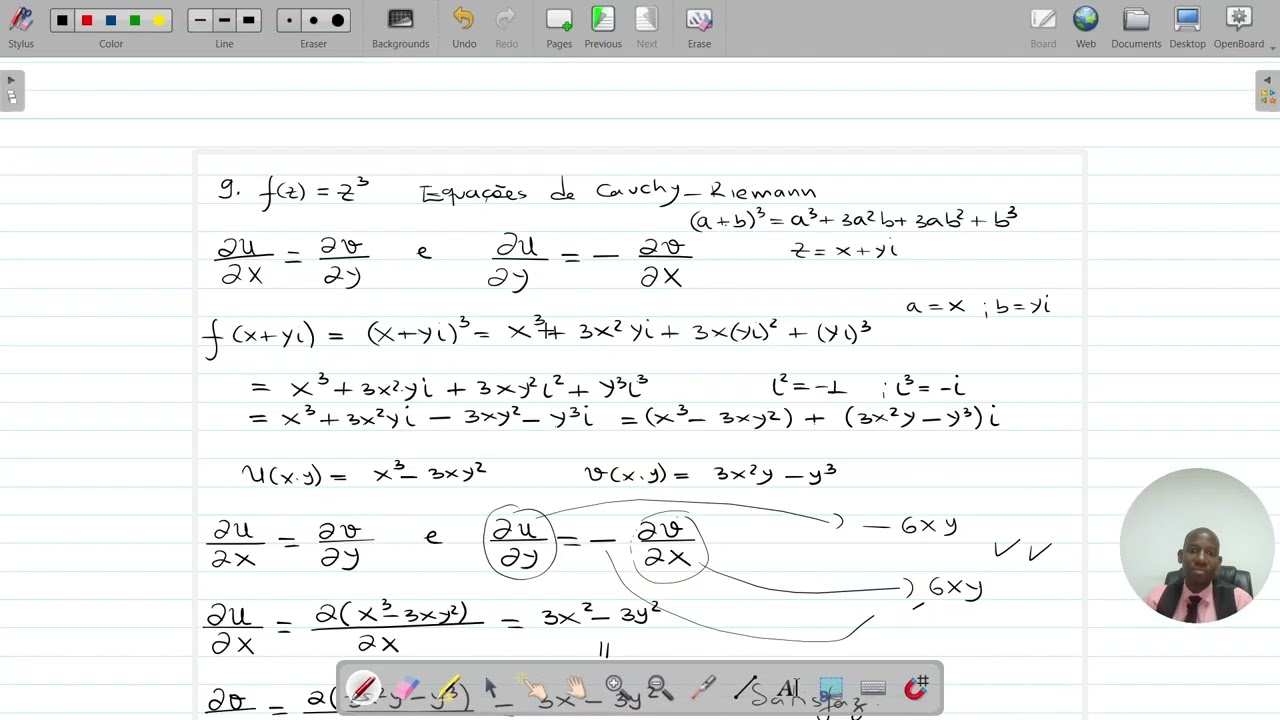 Stylus Color Line Eraser Backgrounds Undo Redo Pages Previous Next Erase Board Web Documents Desktop OpenBoard
9. f(z) = z³ Equações de Cauchy-Riemann
(a+b)³ = a³ + 3a²b + 3ab² + b³
∂u/∂x = ∂v/∂y e ∂u/∂y = - ∂v/∂x z = x + yi
a = x ; b = yi
f(x+yi) = (x+yi)³ = x³ + 3x²yi + 3x(yi)² + (yi)³
= x³ + 3x²yi + 3xy²i² + y³i³ i² = -1 ; i³ = -i
= x³ + 3x²yi - 3xy² - y³i = (x³ - 3xy²) + (3x²y - y³)i
u(x.y) = x³ - 3xy² v(x.y) = 3x²y - y³
∂u/∂x = ∂v/∂y e ∂u/∂y = - ∂v/∂x ) - 6xy ✓✓
) 6xy
∂u/∂x = ∂(x³ - 3xy²)/∂x = 3x² - 3y²